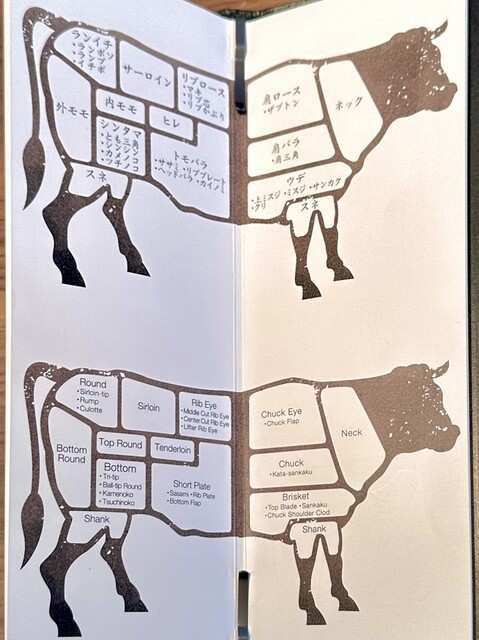 ランイチ
・ライチ
・ランボソ
・ランプ
・イチボ
サーロイン
リブロース
・マキ
・リブ芯
・リブかぶり
外モモ
内モモ
ヒレ
シンタマ
・とも三角
・シンシン
・カメノコ
・ツチノコ
トモバラ
・ササミ ・リブプレート
・ヘッドバラ ・カイノミ
スネ
肩ロース
・ザブトン
ネック
肩バラ
・肩三角
ウデ
・上ミスジ ・ミスジ ・サンカク
・クリ
スネ
Round
・Sirloin-tip
・Rump
・Culotte
Sirloin
Rib Eye
・Middle Cut Rib Eye
・Center Cut Rib Eye
・Lifter Rib Eye
Bottom
Round
Top Round
Tenderloin
Bottom
・Tri-tip
・Ball-tip Round
・Kamenoko
・Tsuchinoko
Short Plate
・Sasami ・Rib Plate
・Bottom Flap
Shank
Chuck Eye
・Chuck Flap
Neck
Chuck
・Kata-sankaku
Brisket
・Top Blade ・Sankaku
・Chuck Shoulder Clod
Shank